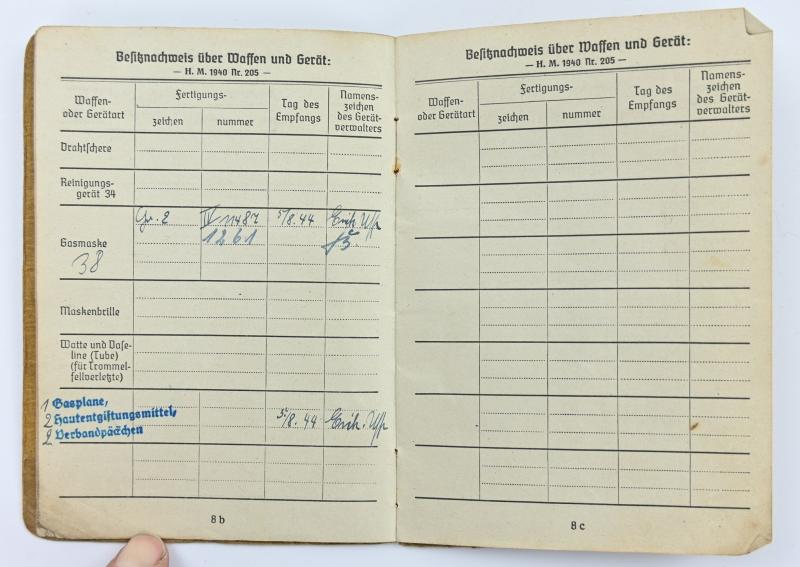 Besitznachweis über Waffen und Gerät:
— H. M. 1940 Nr. 205 —
Waffen-
oder Gerätart
Fertigungs-
zeichen
nummer
Tag des
Empfangs
Namens-
zeichen
des Gerät-
verwalters
Drahtschere
Reinigungs-
gerät 34
Gasmaske
38
Gr. 2
IV 11487
5/8.44
1261
Maskenbrille
Watte und Vase-
line (Tube)
(für Trommel-
fellverletzte)
1 Gasplane,
2 Hautentgiftungsmittel,
2 Verbandpäckchen
5/8.44
8 b
Besitznachweis über Waffen und Gerät:
— H. M. 1940 Nr. 205 —
Waffen-
oder Gerätart
Fertigungs-
zeichen
nummer
Tag des
Empfangs
Namens-
zeichen
des Gerät-
verwalters
8 c